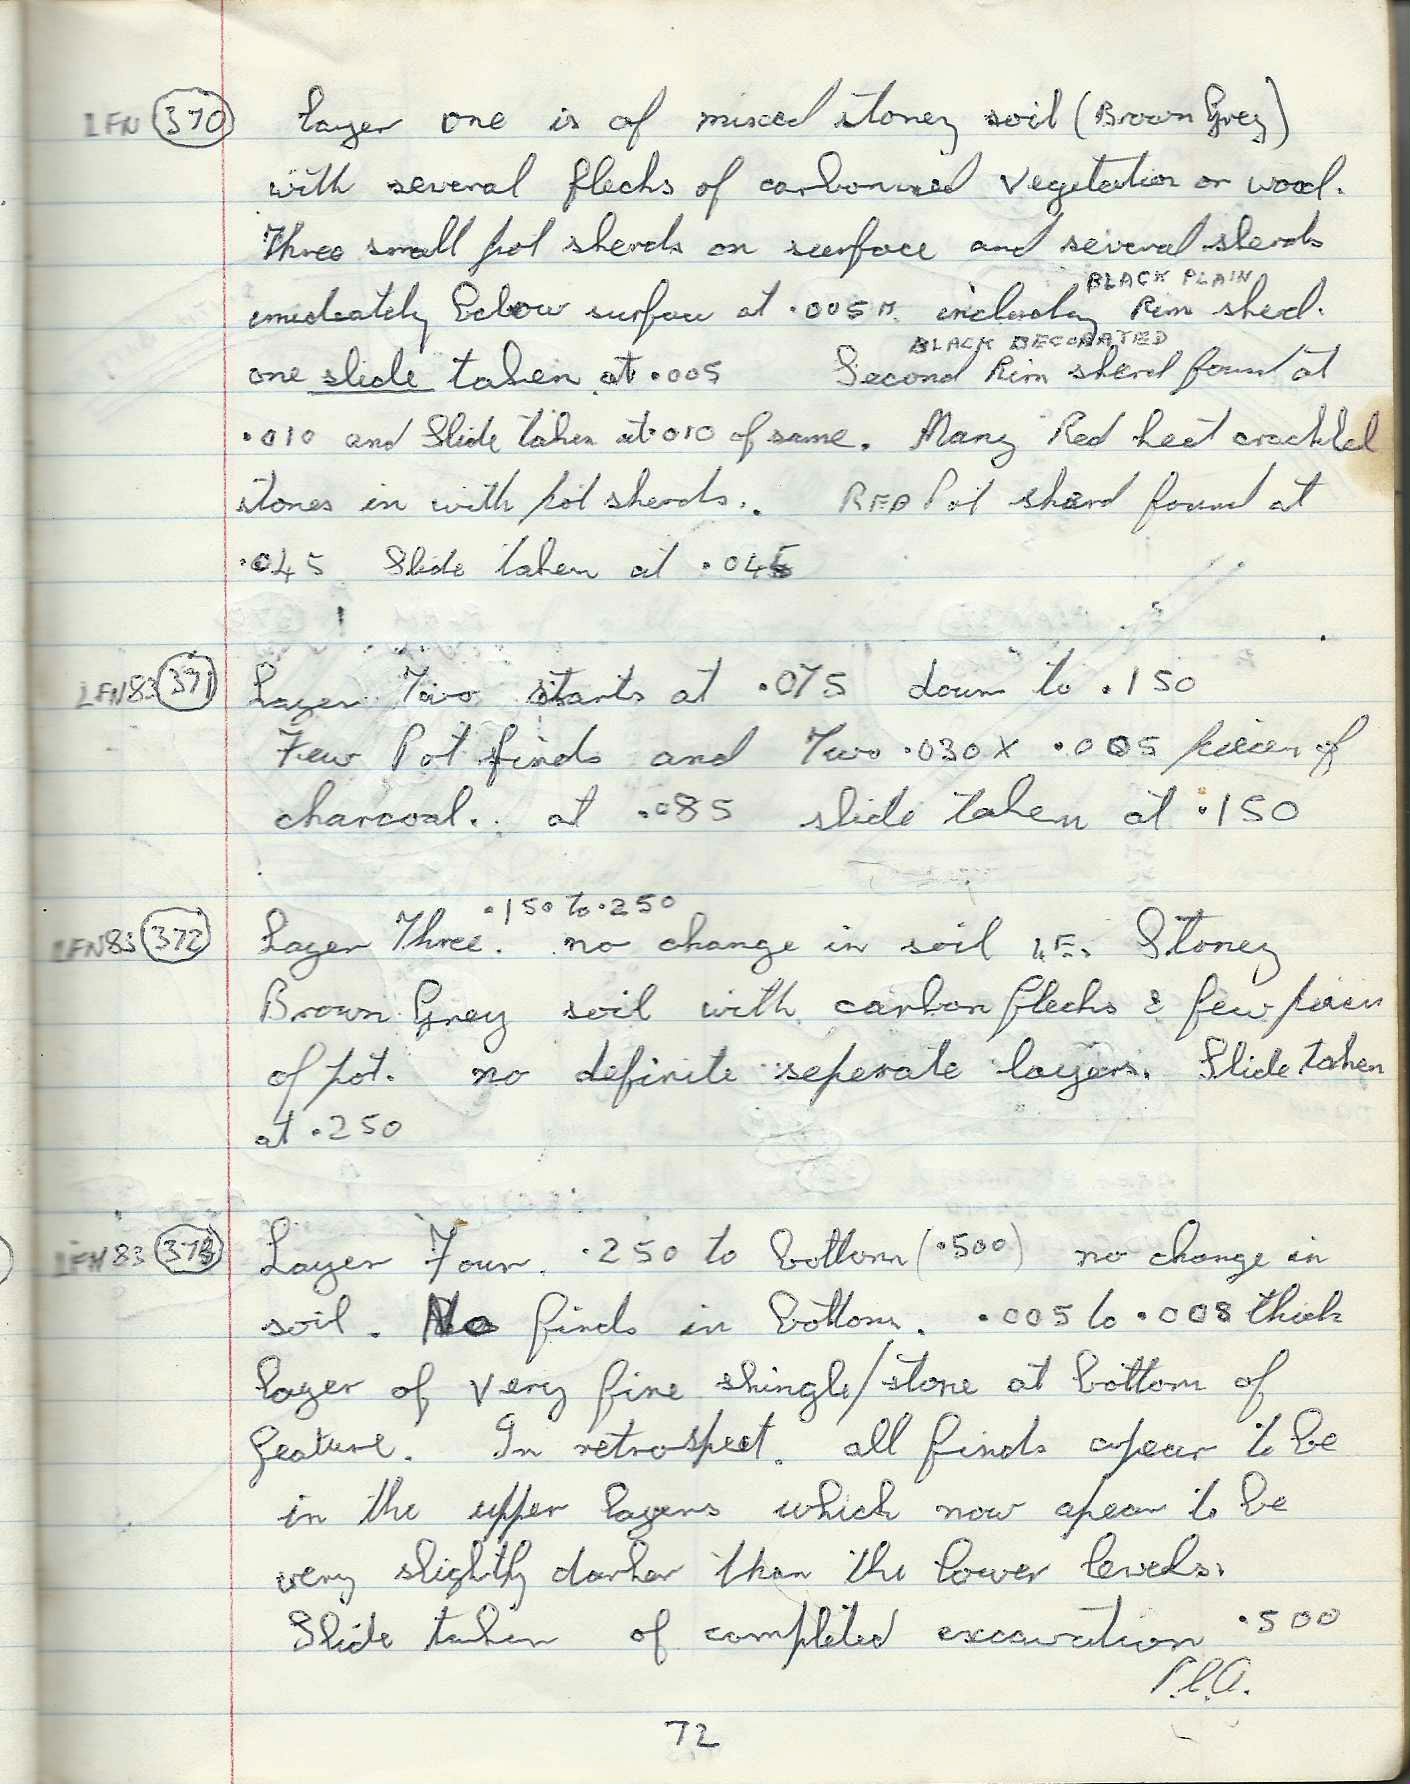 LFN 370 Layer one is of mixed stoney soil (Brown Grey)
with several flecks of carbonised vegetation or wood.
Three small pot sherds on surface and several sherds
BLACK PLAIN
imediately below surface at .005 M. including Rim sherd.
BLACK DECORATED
one slide taken at .005 Second Rim sherd found at
.010 and Slide taken at .010 of same. Many Red heat crackled
stones in with pot sherds. RED Pot sherd found at
.045 Slide taken at .045
LFN83 371 Layer Two starts at .075 down to .150
Few Pot finds and Two .030 X .005 pieces of
charcoal. at .085 slide taken at .150
.150 to .250
LFN83 372 Layer Three. no change in soil I.E. Stoney
Brown Grey soil with carbon flecks & few pieces
of pot. no definite seperate layers. Slide taken
at .250
LFN83 373 Layer Four. .250 to bottom (.500) no change in
soil. No finds in bottom. .005 to .008 thick
layer of very fine shingle/stone at bottom of
feature. In retrospect. all finds apear to be
in the upper layers which now apear to be
very slightly darker than the lower levels.
Slide taken of completed excavation .500
P.l.A.
72